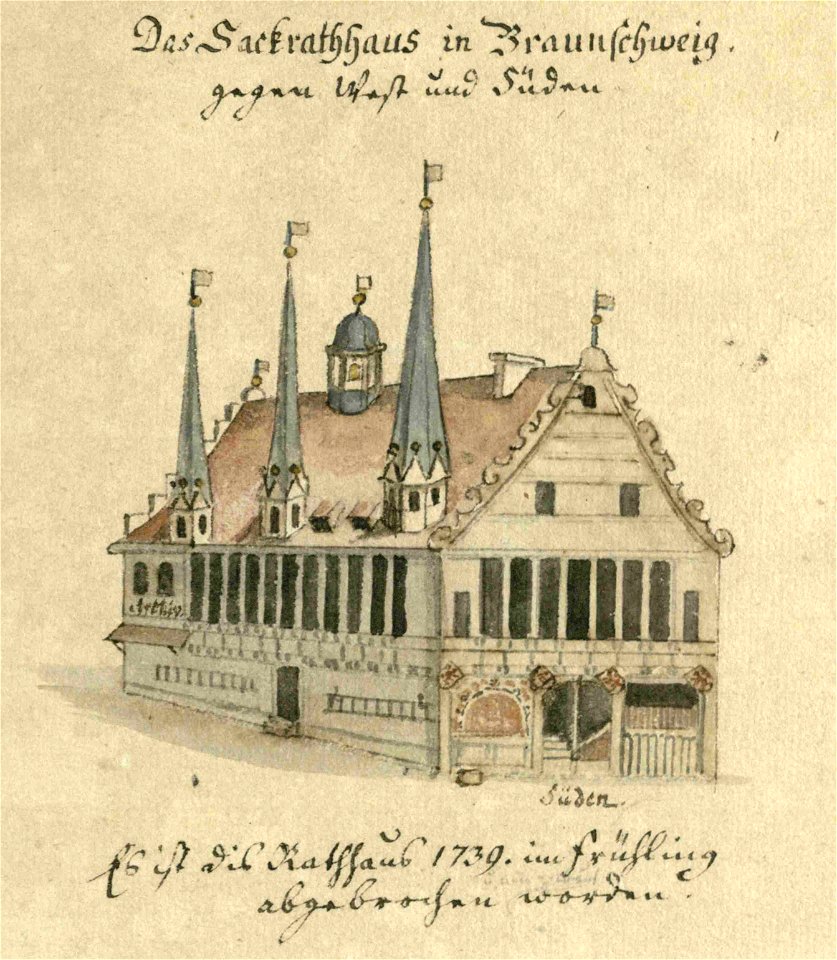 Das Sackrathhaus in Braunschweig.
gegen West und Süden
Archiv.
Süden.
Es ist dis Rathhaus 1739. im Frühling
abgebrochen worden.